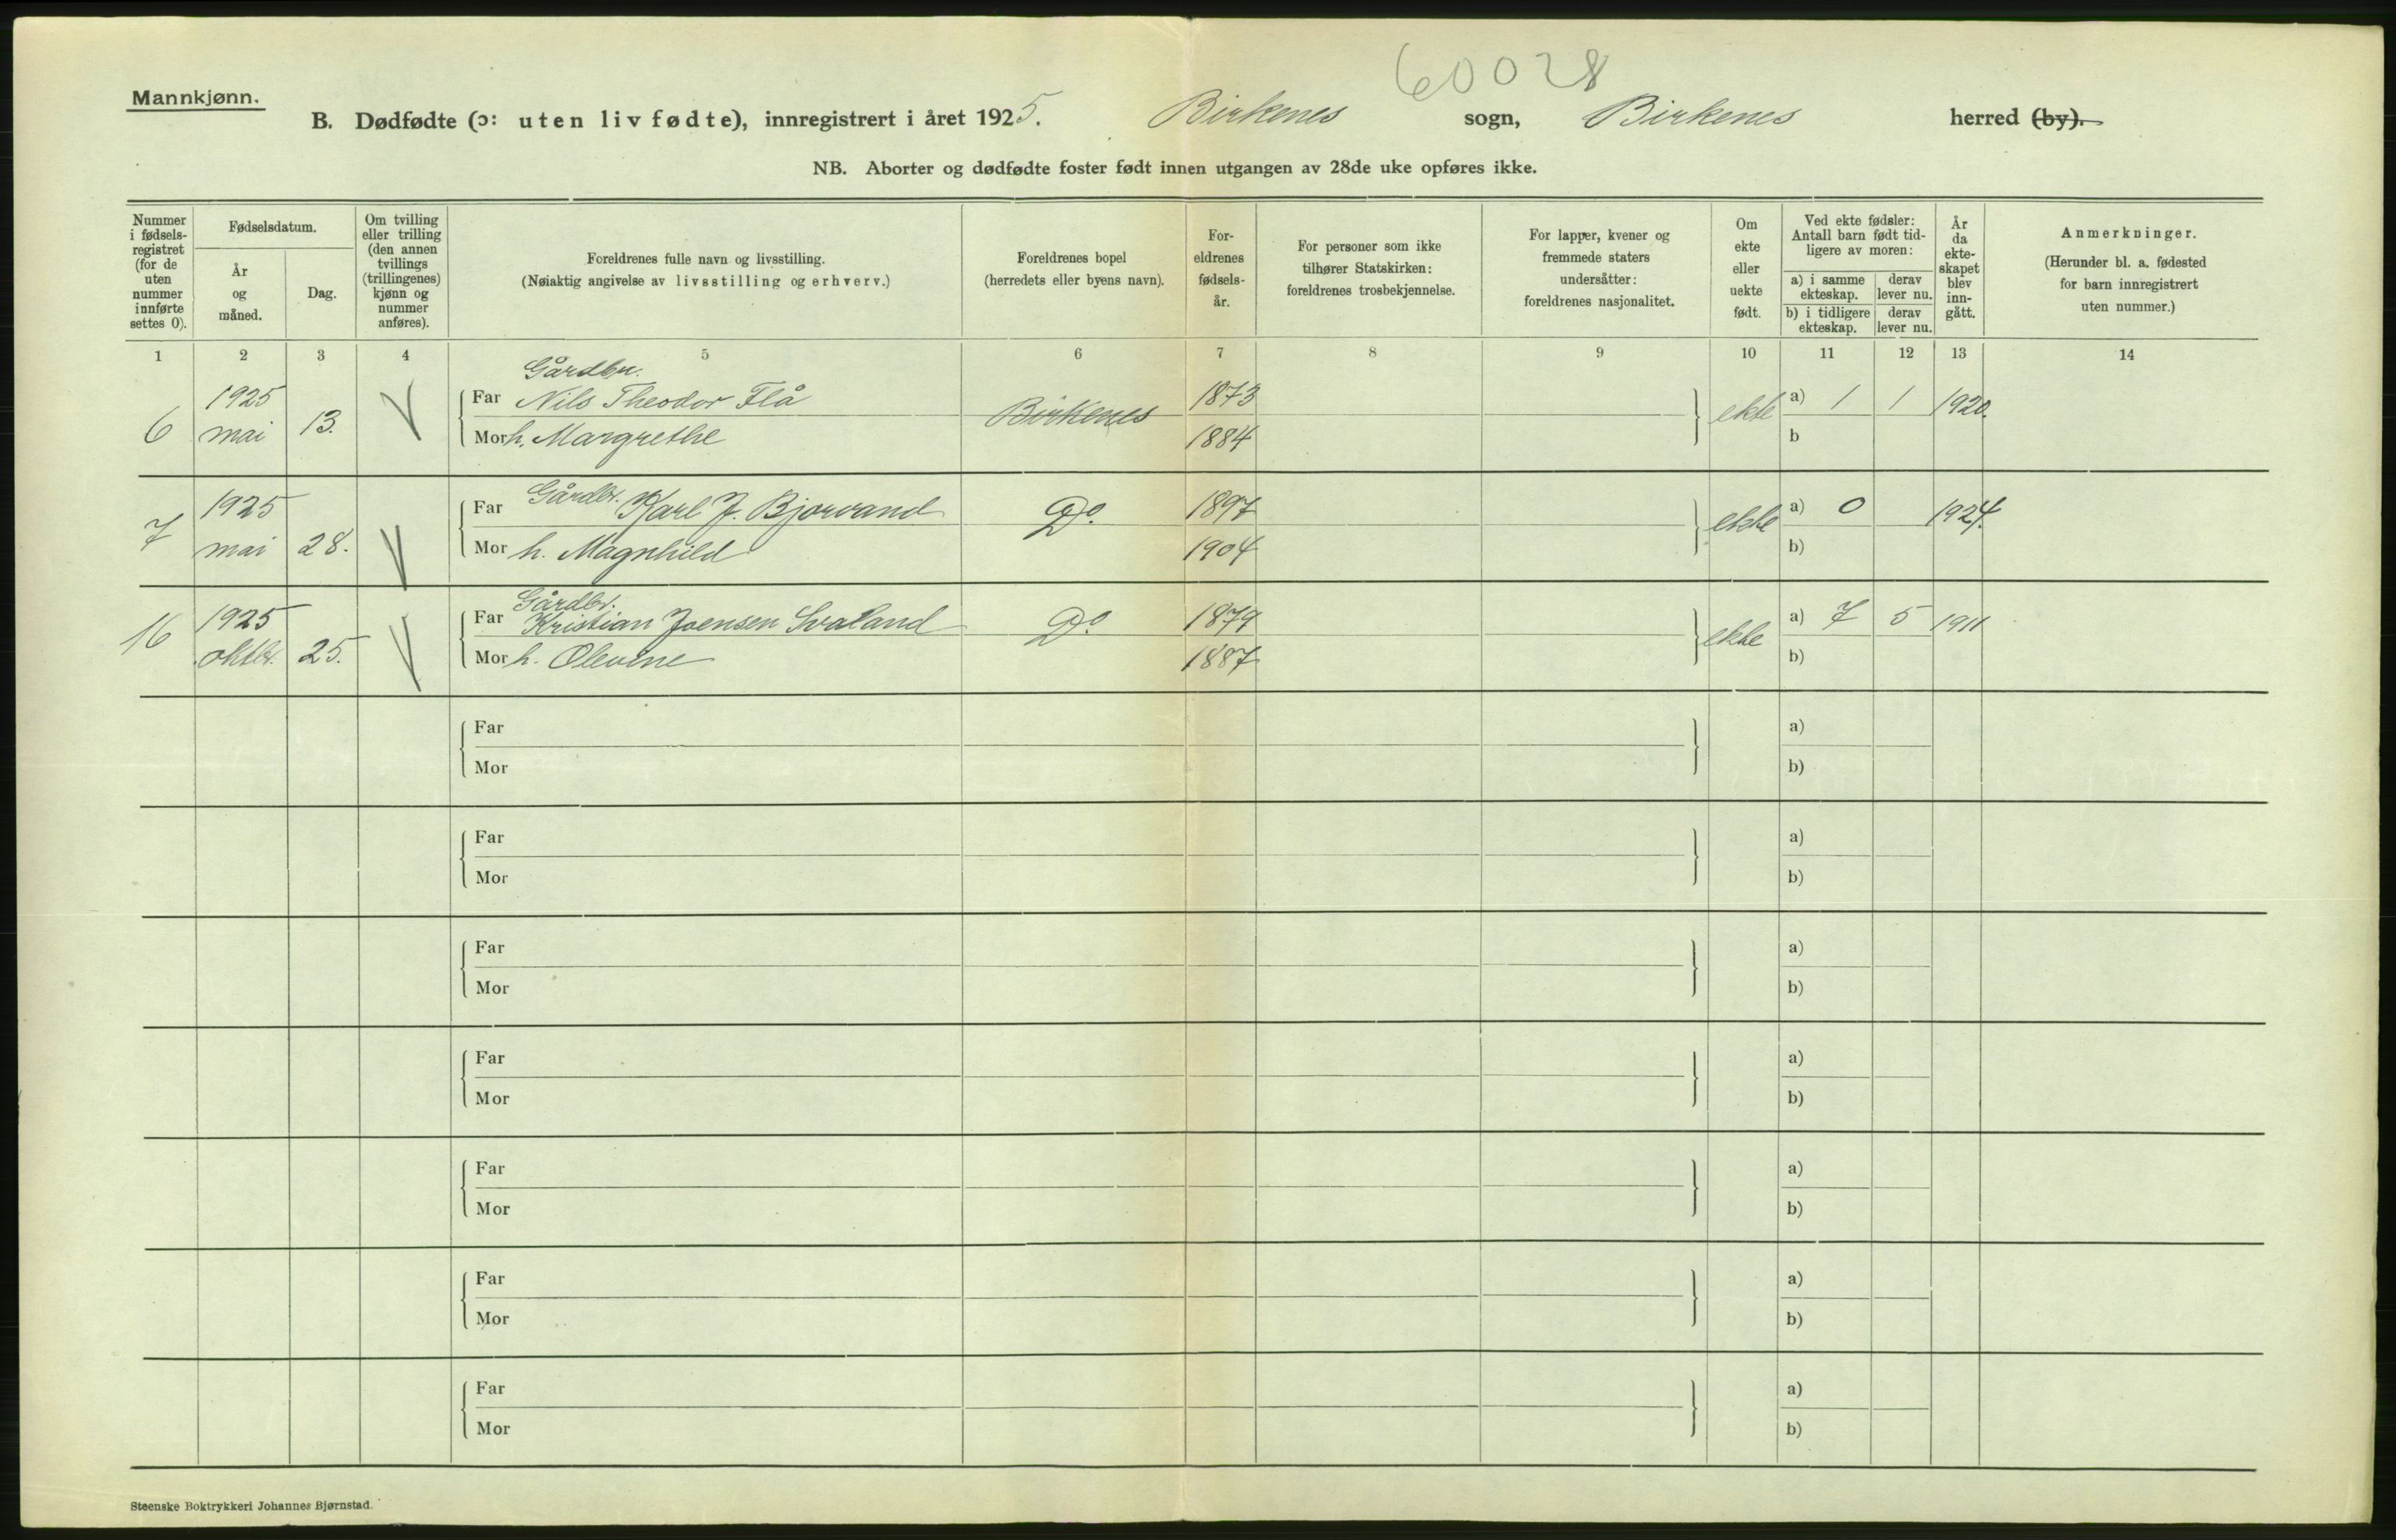 60028
Mannkjønn.
B. Dødfødte (ɔ: uten liv fødte), innregistrert i året 1925. Birkenes sogn, Birkenes herred (by).
NB. Aborter og dødfødte foster født innen utgangen av 28de uke opføres ikke.
Nummer i fødsels-registret (for de uten nummer innførte settes 0).
Fødselsdatum.
År og måned.
Dag.
Om tvilling eller trilling (den annen tvillings (trillingenes) kjønn og nummer anføres).
Foreldrenes fulle navn og livsstilling.
(Nøiaktig angivelse av livsstilling og erhverv.)
Foreldrenes bopel
(herredets eller byens navn).
For-eldrenes fødsels-år.
For personer som ikke tilhører Statskirken: foreldrenes trosbekjennelse.
For lapper, kvener og fremmede staters undersåtter: foreldrenes nasjonalitet.
Om ekte eller uekte født.
Ved ekte fødsler: Antall barn født tid-ligere av moren:
a) i samme ekteskap.
derav lever nu.
b) i tidligere ekteskap.
derav lever nu.
År da ekte-skapet blev inn-gått.
Anmerkninger.
(Herunder bl. a. fødested for barn innregistrert uten nummer.)
1 2 3 4 5 6 7 8 9 10 11 12 13 14
Gårdbr.
6 1925 mai 13. Far Nils Theodor Flå Birkenes 1873 ekte a) 1 1 1920.
Mor h. Margrethe 1884 b
7 1925 mai 28. Far Gårdbr. Karl J. Bjorvand Do. 1897 ekte a) 0 1924.
Mor h. Magnhild 1904 b)
Gårdbr.
16 1925 oktbr. 25. Far Kristian Joensen Svaland Do. 1879 ekte a) 7 5 1911
Mor h. Olevine 1887 b)
Far a)
Mor b)
Far a)
Mor b)
Far a)
Mor b)
Far a)
Mor b)
Far a)
Mor b)
Far a)
Mor b)
Far a)
Mor b)
Steenske Boktrykkeri Johannes Bjørnstad.